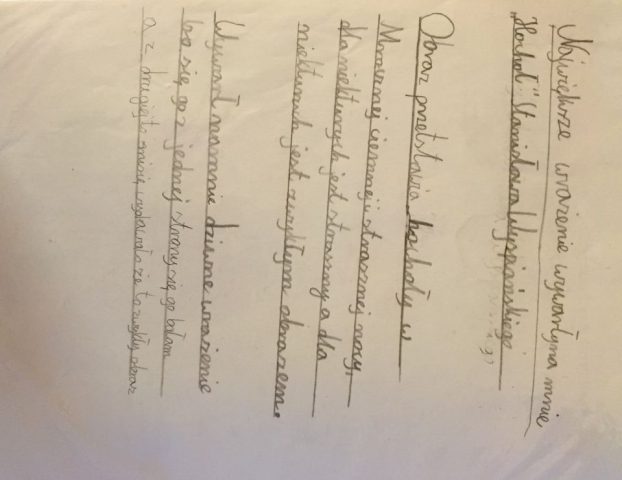 Największe wrażenie wywarły na mnie
„Chochoł" Stanisława Wyspiańskiego
Obraz przetstawia hochoły w
Mrocznej ciemnej i strasznej nocy,
dla niektórych jest straszny a dla
niektórych jest zwykłym obrazem.
Wywarł na mnie dziwne wrażenie
bo się go z jednej strony się go bałam
a z drugiej to mi się wydawało że to zwykły obraz